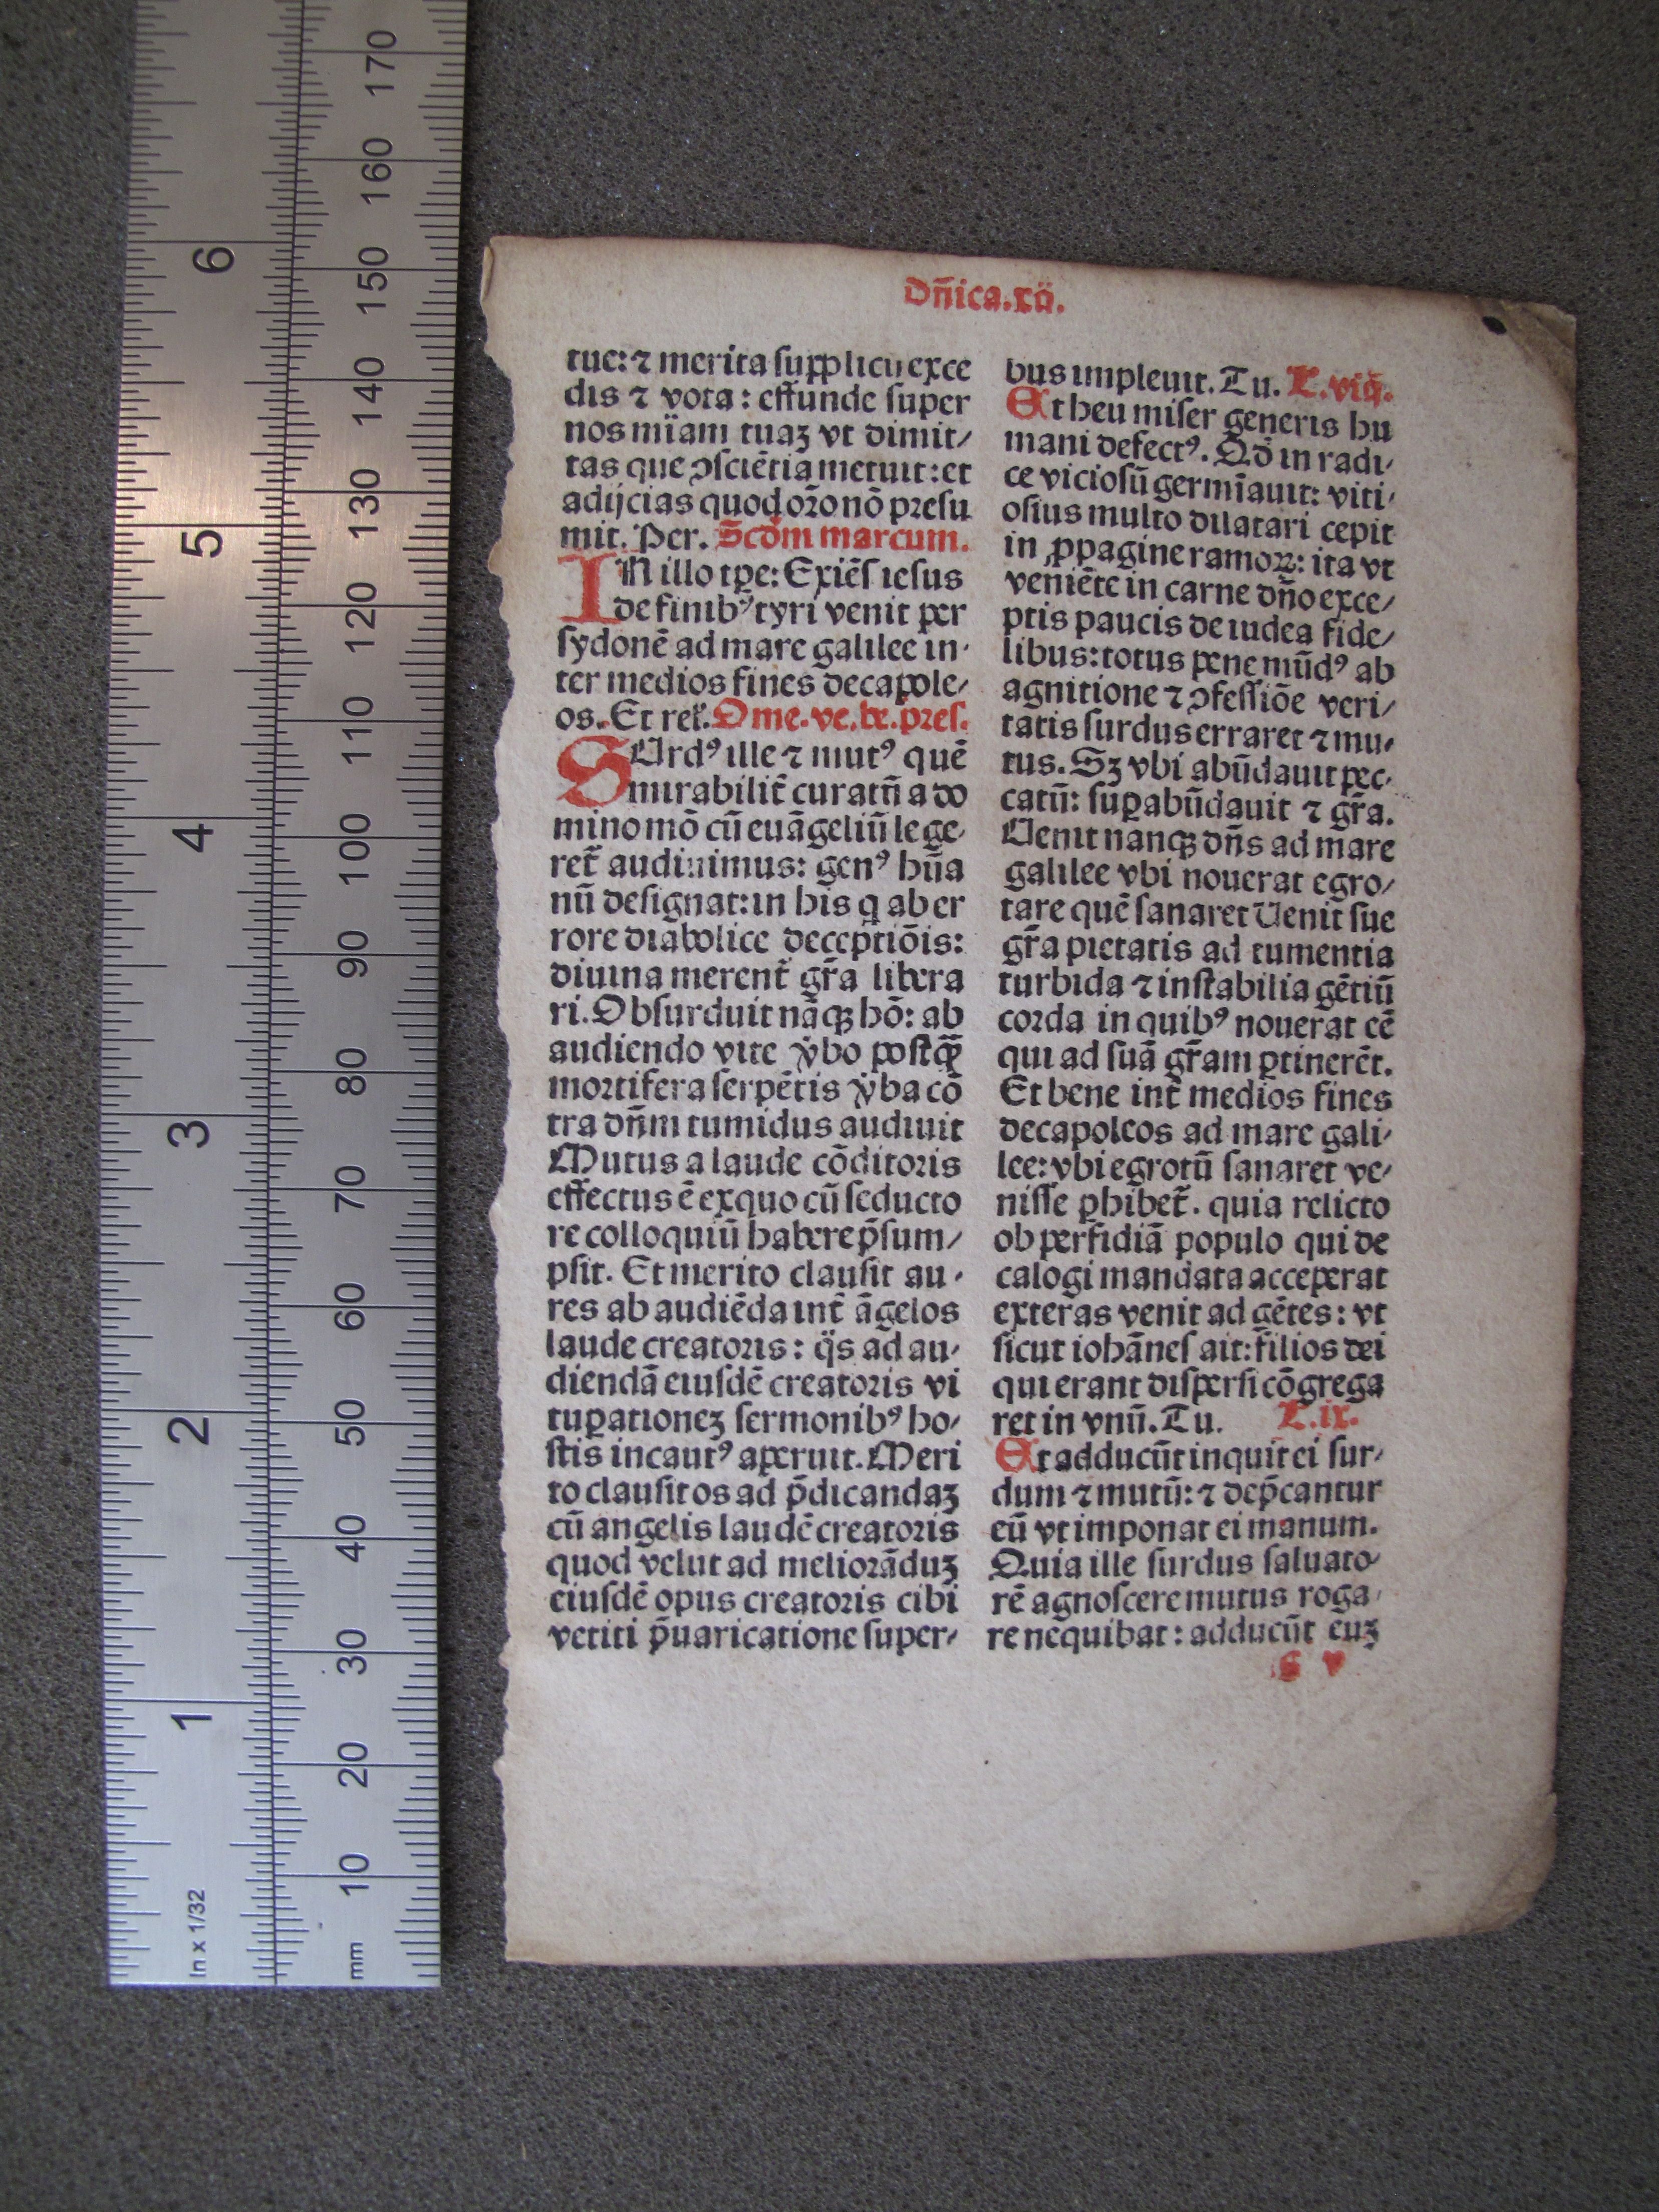 dñica.xii.
tue: ⁊ merita supplicū exce
dis ⁊ vota: effunde super
nos mīam tuaꝫ vt dimit/
tas que ꝯsciētia metuit: et
adijcias quod oꝛo nō pꝛesu
mit. Per. Scd̄m marcum.
IN illo tꝑe: Exiēs iesus
de finibꝰ tyri venit per
sydonē ad mare galilee in/
ter medios fines decapole/
os. Et rel̄. Ome. ve. be. pꝛes.
SUrdꝰ ille ⁊ mutꝰ quē
mirabilit̄ curatū a do
mino mō cū euāgeliū lege/
ret̄ audiuimus: genꝰ hūa
nū designat: in his q ab er
rore diabolice deceptiōis:
diuina merent̄ gr̄a libera
ri. Obsurduit nāqꝫ hō: ab
audiendo vite v̇bo postqꝫ̄
moꝛtifera serpētis v̇ba cō
tra dn̄m tumidus audiuit
Mutus a laude cōditoꝛis
effectus ē ex quo cū seducto
re colloquiū habere p̄sum/
psit. Et merito clausit au/
res ab audiēda int̄ āgelos
laude creatoꝛis: q̈s ad au/
diendā eiusdē creatoꝛis vi
tuꝑationeꝫ sermonibꝰ ho/
stis incautꝰ aperuit. Meri
to clausit os ad p̄dicandaꝫ
cū angelis laudē creatoꝛis
quod velut ad melioꝛāduꝫ
eiusdē opus creatoꝛis cibi
vetiti p̄uaricatione super/
bus impleuit. Tu. L. viij.
At heu miser generis hu
mani defectꝰ. Qd̄ in radi/
ce viciosū germīauit: viti/
osius multo dilatari cepit
in ꝓpagine ramoꝝ: ita vt
veniēte in carne dn̄o exce/
ptis paucis de iudea fide/
libus: totus pene mūdꝰ ab
agnitione ⁊ ꝯfessiōe veri/
tatis surdus erraret ⁊ mu/
tus. Sꝫ vbi abūdauit pec/
catū: suꝑabūdauit ⁊ gr̄a.
Uenit nanqꝫ dn̄s ad mare
galilee vbi nouerat egro/
tare quē sanaret Uenit sue
gr̄a pietatis ad tumentia
turbida ⁊ instabilia gētiū
coꝛda in quibꝰ nouerat eē
qui ad suā gr̄am ꝑtinerēt.
Et bene int̄ medios fines
decapoleos ad mare gali/
lee: vbi egrotū sanaret ve/
nisse ꝑhibet̄. quia relicto
ob perfidiā populo qui de
calogi mandata acceperat
exteras venit ad gētes: vt
sicut iohānes ait: filios dei
qui erant dispersi cōgrega
ret in vnū. Tu. L. ix.
Et adducūt inquit ei sur/
dum ⁊ mutū: ⁊ dep̄cantur
eū vt imponat ei manum.
Quia ille surdus saluato/
rē agnoscere mutus roga/
re nequibat: adducūt euꝫ
In x 1/32
1
2
3
4
5
6
mm
10
20
30
40
50
60
70
80
90
100
110
120
130
140
150
160
170